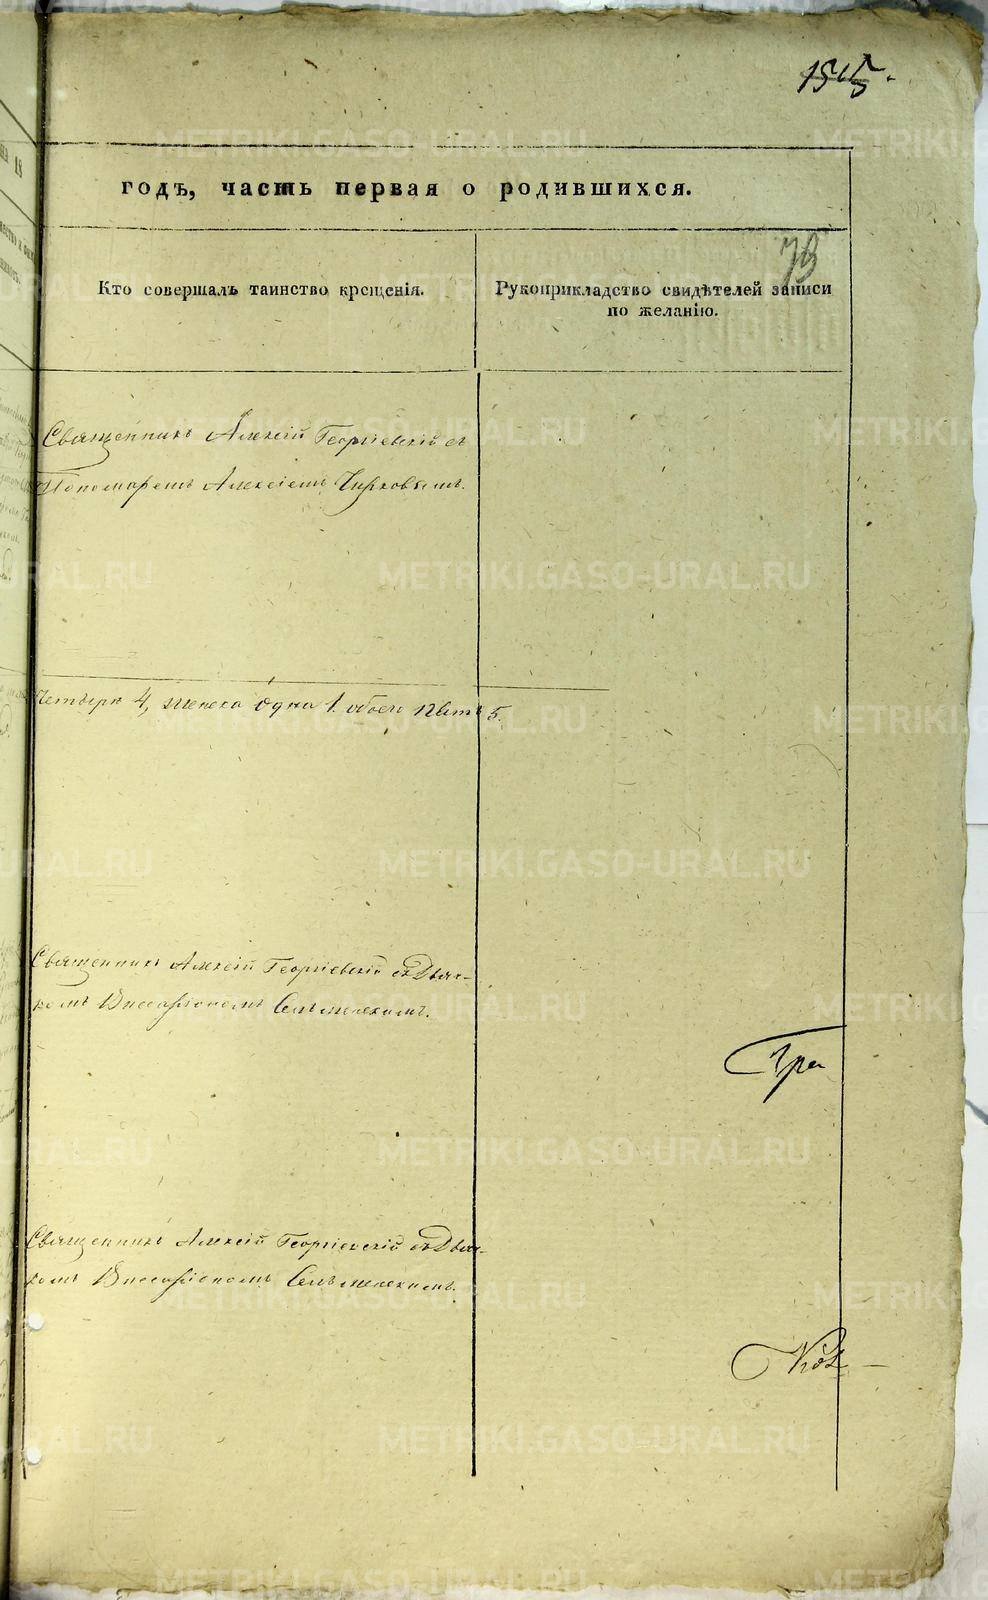 годъ, часть первая о родившихся.
73
Кто совершалъ таинство крещенія.
Рукоприкладство свидѣтелей записи
по желанію.
Священникъ Алексій Георгіевскій съ
Пономаремъ Алексіемъ Чирковымъ.
Четыре 4, женска одна 1. обоего 5.
Священникъ Алексій Георгіевскій съ Дьяч-
комъ Виссаріономъ
Гра
Священникъ Алексій Георгіевскій съ Дьяч-
комъ Виссаріономъ
METRIKI.GASO-URAL.RU